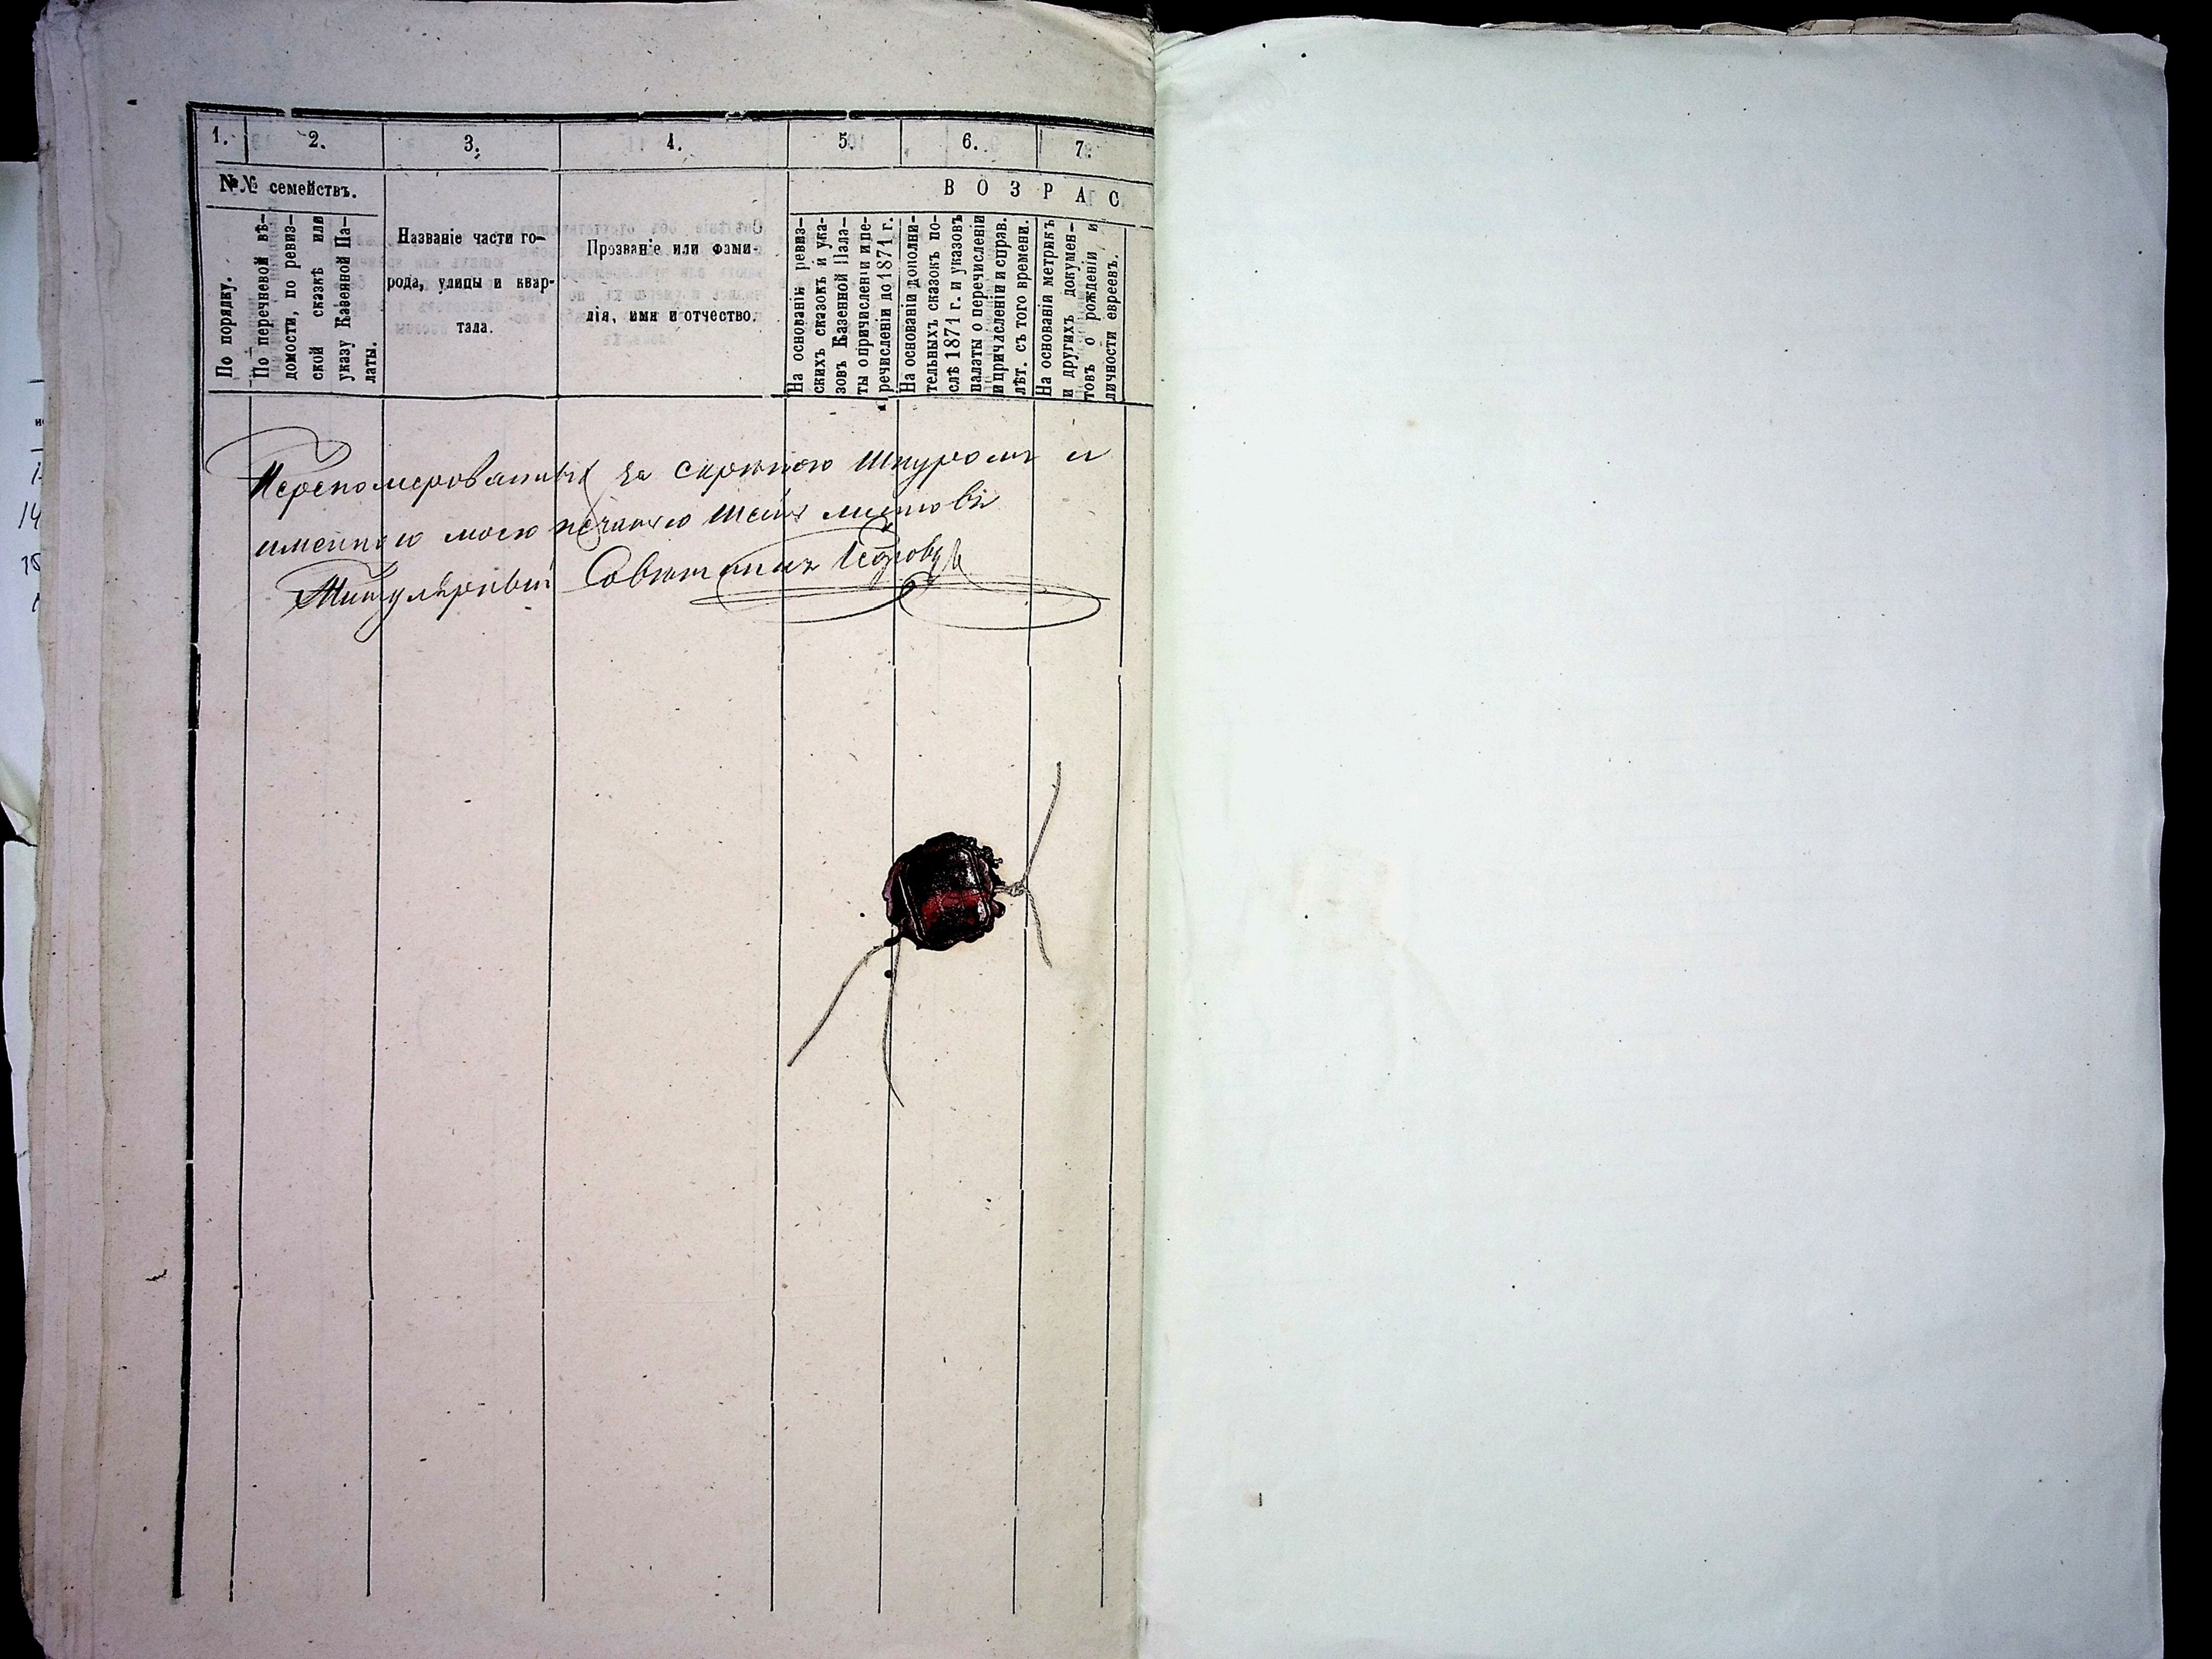 1. 2. 3. 4. 5. 6. 7.
№№ семействъ.
В О З Р А С
По порядку.
По перечневой вѣ-
домости, по ревиз-
ской сказкѣ или
указу Казенной Па-
латы.
Названіе части го-
рода, улицы и квар-
тала.
Прозваніе или фами-
лія, имя и отчество.
На основаніи ревиз-
скихъ сказокъ и ука-
зовъ Казенной Пала-
ты о причисленіи и пе-
речисленіи до 1871 г.
На основаніи дополни-
тельныхъ сказокъ по-
слѣ 1871 г. и указовъ
палаты о перечисленіи
и причисленіи и справ.
лѣт. съ того времени.
На основаніи метрикъ
и другихъ докумен-
товъ о рожденіи и
личности евреевъ.
за скрѣпою шнуромъ и
именною моею печатью листовъ
Титулярный Совѣтникъ